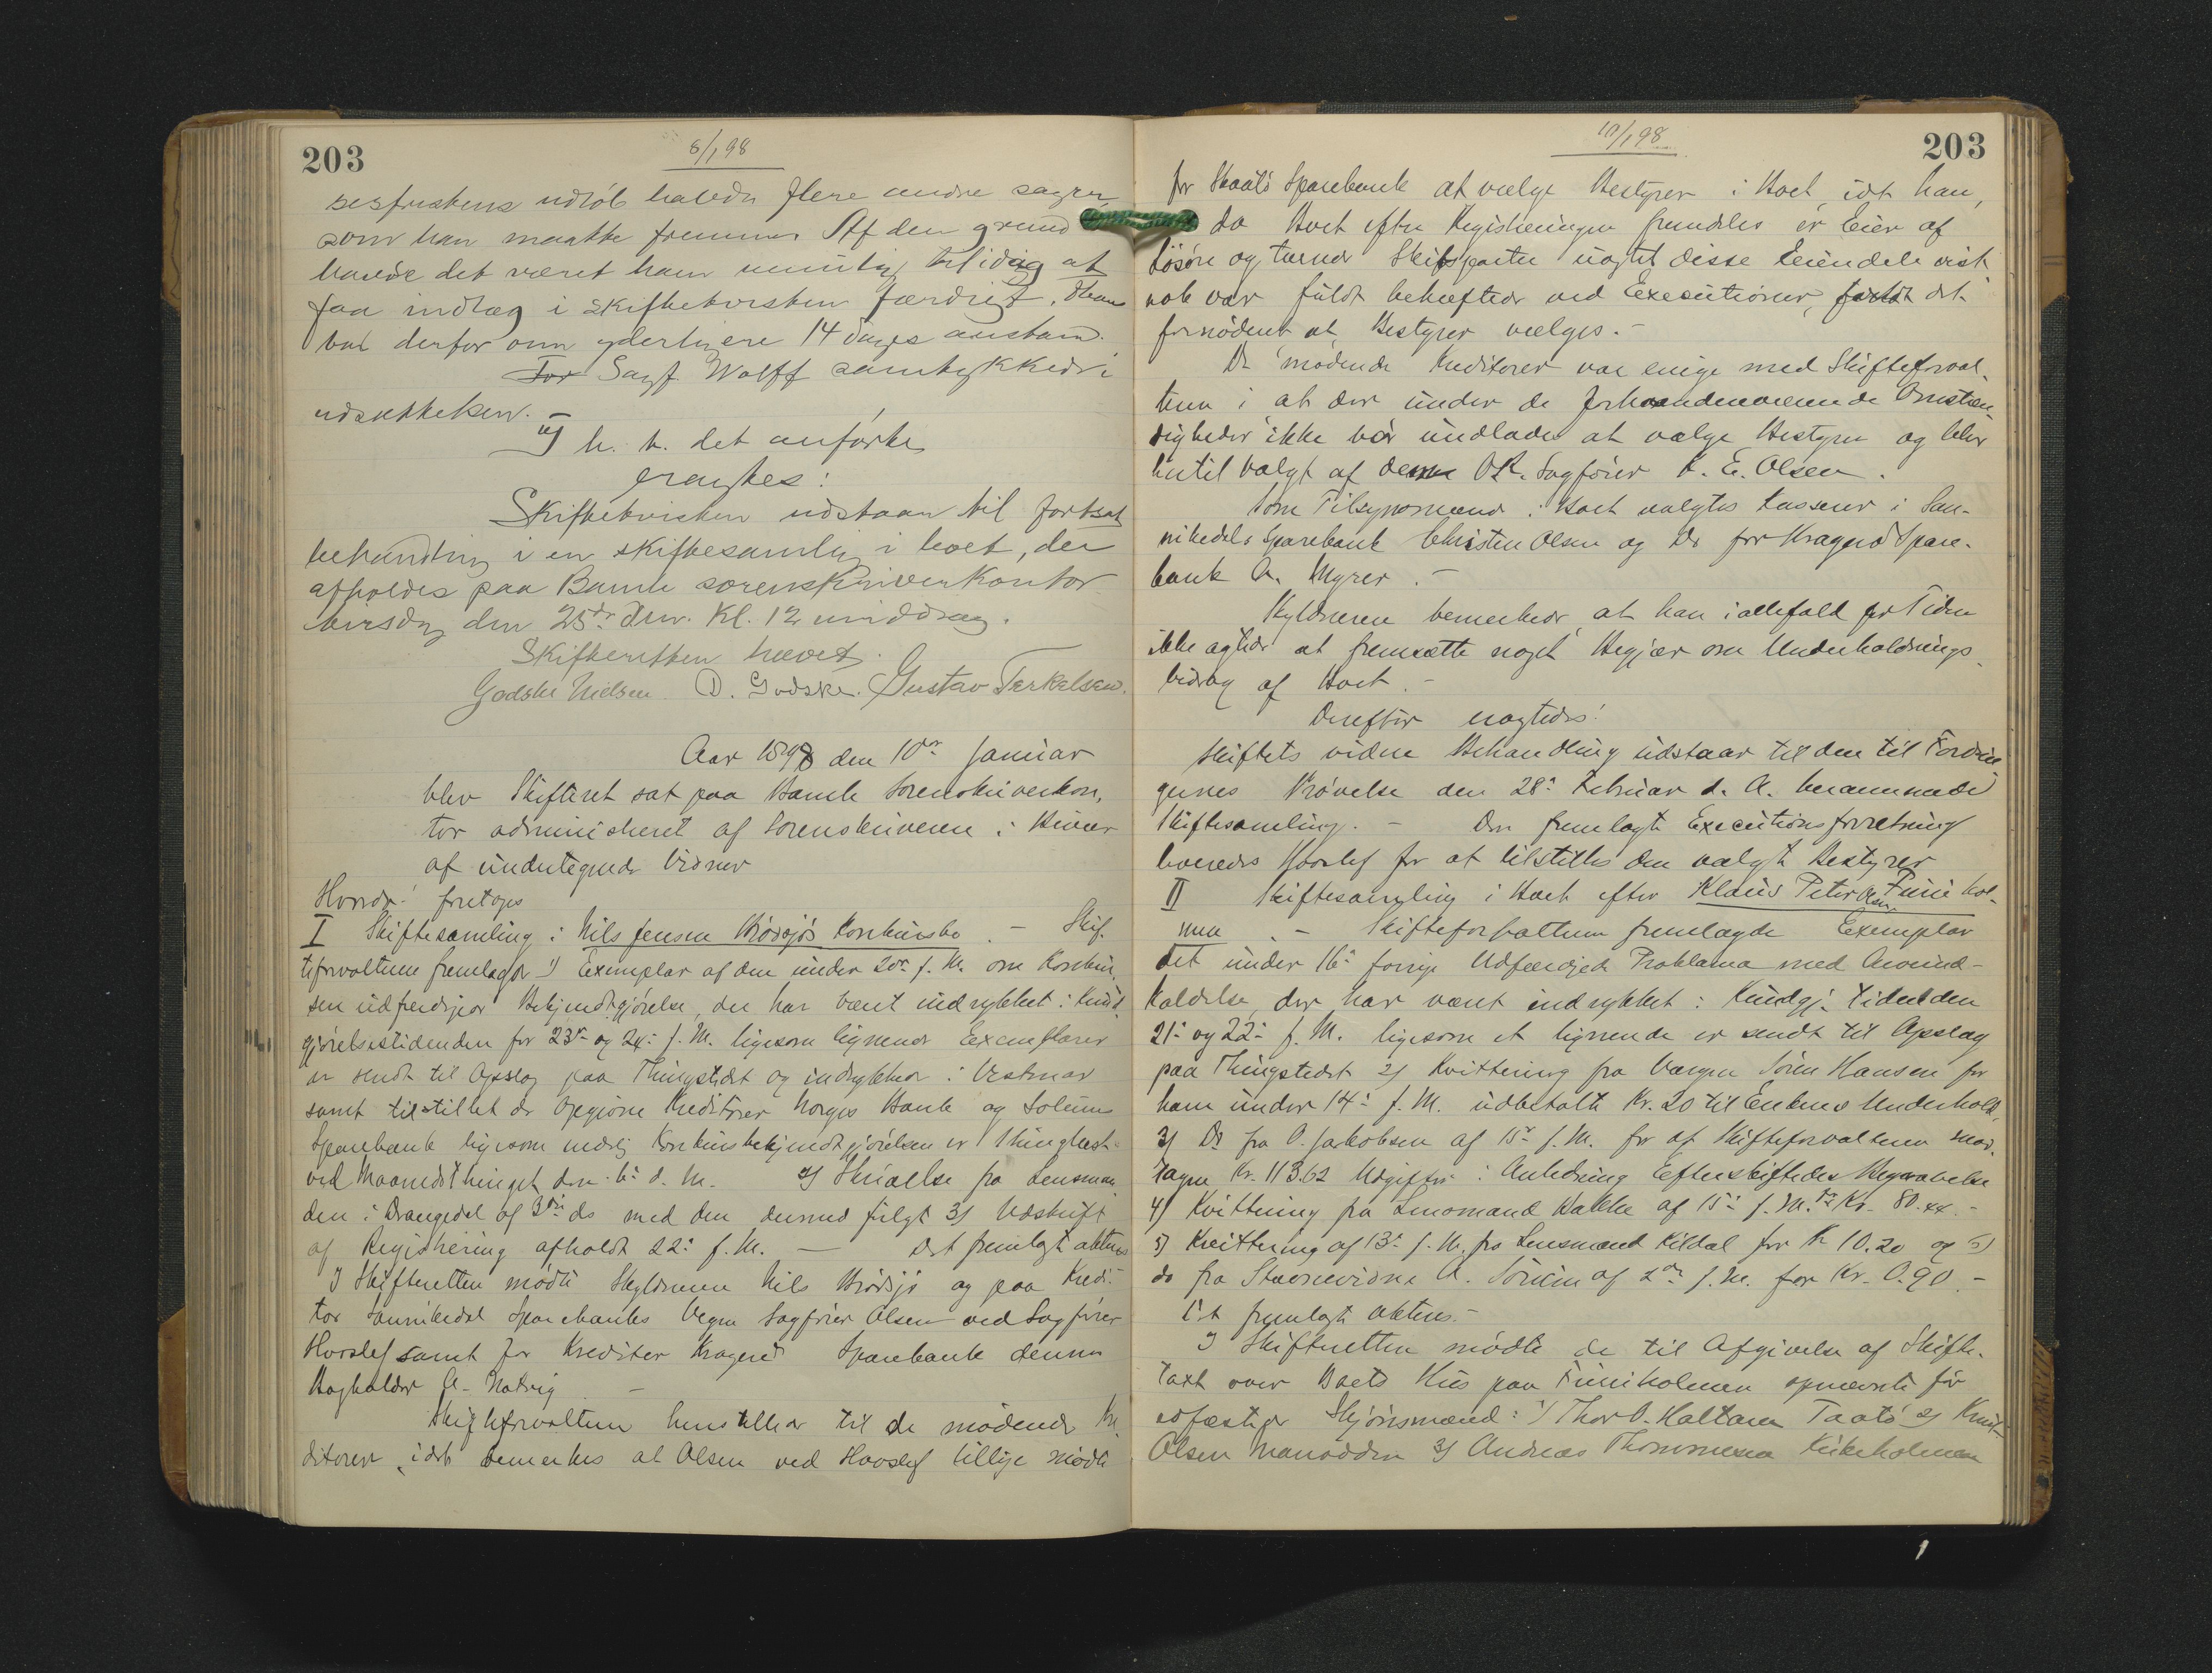 203
8/1 98
sesfristens udløb havde flere andre sager,
som han maatte fremme. Af den grund
havde det været ham umulig tilidag at
faa indlæg i skiftetvisten færdigt. Han
bad derfor om yderligere 14 dages anstand.
For Sagf. Wolff samtykkede i
udsættelsen. –
I h. t. det anførte
eragtes:
Skiftetvisten udstaar til fortsat
behandling i en skiftesamling i boet, der
afholdes paa Bamle sorenskriverkontor
tirsdag den 25de dnr. Kl. 12 middag.
Skifteretten hævet.
Godske Nielsen D. Godske. Gustav Terkelsen.
Aar 1898 den 10de Januar
blev Skifteret sat paa Bamle Sorenskriverkon-
tor administreret af Sorenskriveren i Nævær
af undertegnede Vidner
Hvorda: foretoges
I Skiftesamling i Nils Jensen Brødsjøs Konkursbo. – Skif-
teforvalteren fremlagde 1) Exemplar af den under 20de f. M. om Konkur-
sen udfærdigede Bekjendtgjørelse, der har været indrykket i Kund-
gjørelsestidenden for 23de og 24: f. M. ligesom lignende Exemplarer
er sendt til Opslag paa Thingstedet og indrykket i Vestmar
samt tilstillet de opgivne Kreditorer Norges Bank og Solums
Sparebank ligesom endelig Konkursbekjendtgjørelsen er thinglæst
ved Maanedsthinget den 6: d. M. 2) Skrivelse fra Lensman-
den i Drangedal af 3die ds med den dermed fulgt 3) Udskrift
af Registrering afholdt 22: f. M. – Det fremlagt akteres
I Skifteretten mødte Skyldneren Nils Brødsjø og paa Kredi-
tor Sannikedal Sparebanks Vegne Sagfører Olsen ved Sagfører
Horslef samt for Kreditor Kragerø Sparebank dennes
Bogholder A. Natvig. –
Skifteforvalteren henstillede til de mødende Kre-
ditorer, idet bemerkes at Olsen ved Hovslef tillige mødte
10/1 98
203
for Skaatø Sparebank at vælge Bestyrer i Boet, idet han,
da Boet efter Registreringen fremdeles er Eier af
Løsøre og tvende Skibsparter uagtet disse Eiendele vist
nok var fuldt behæftede ved Executioner, fandt det
fornødent at Bestyrer vælges. –
De mødende Kreditorer var enige med Skifteforval-
teren i at der under de forhaandenværende Omstæn-
digheder ikke bør undlades at vælge Bestyrer og blev
hertil valgt af dem O.R. Sagfører K. E. Olsen.
Som Tilsynsmænd i Boet valgtes Kasserer i San-
nikedals Sparebank Christen Olsen og Do for Kragerø Spare-
bank A. Myrer. –
Skyldneren bemerkede, at han iallefald for Tiden
ikke agtede at fremsætte noget Begjær om Underholdnings-
bidrag af Boet. –
Derefter eragtedes:
Skiftets videre Behandling udstaar til den til Fordrin-
gernes Prøvelse den 28: Februar d. A. berammede
Skiftesamling. – Den fremlagte Executionsforretning
leveredes Hovslef for at tilstilles den valgte Bestyrer
II Skiftesamling i Boet efter Klaus Peter Olsen Furuhol-
men. – Skifteforvalteren fremlagde Exemplar
det under 16: forrige udfærdigede Proklama med Arveind-
kaldelse, der har været indrykket i Kundgj. tidenden
21: og 22: f. M. ligesom et lignende er sendt til Opslag
paa Thingstedet 2) Kvittering fra Værgen Søren Hansen for
ham under 14: f. M. udbetalte Kr. 20 til Enkens Underhold,
3) Do fra O. Jakobsen af 15: f. M. for af Skifteforvalteren mod-
tagne Kr. 113.62 Udgifter i Anledning Efterskiftedes Begravelse
4) Kvittering fra Lensmand Bakke af 15: f. M. for Kr. 80.44. –
5) Kvittering af 13: f. M. fra Lensmand Kildal for Kr 10.20 og 5)
do fra Stævnevidne A. Sørsien af 2den f. M. for Kr. 0.90. –
Det fremlagt akteres. –
I Skifteretten mødte de til Afgivelse af Skifte-
taxt over Boets Hus paa Furuholmen opnævnte før
edfæstede Skjønsmænd: 1) Thor O. Haltaren Taatø 2) Knut
Olsen Manodden 3) Andreas Thommesen Kirkeholmen